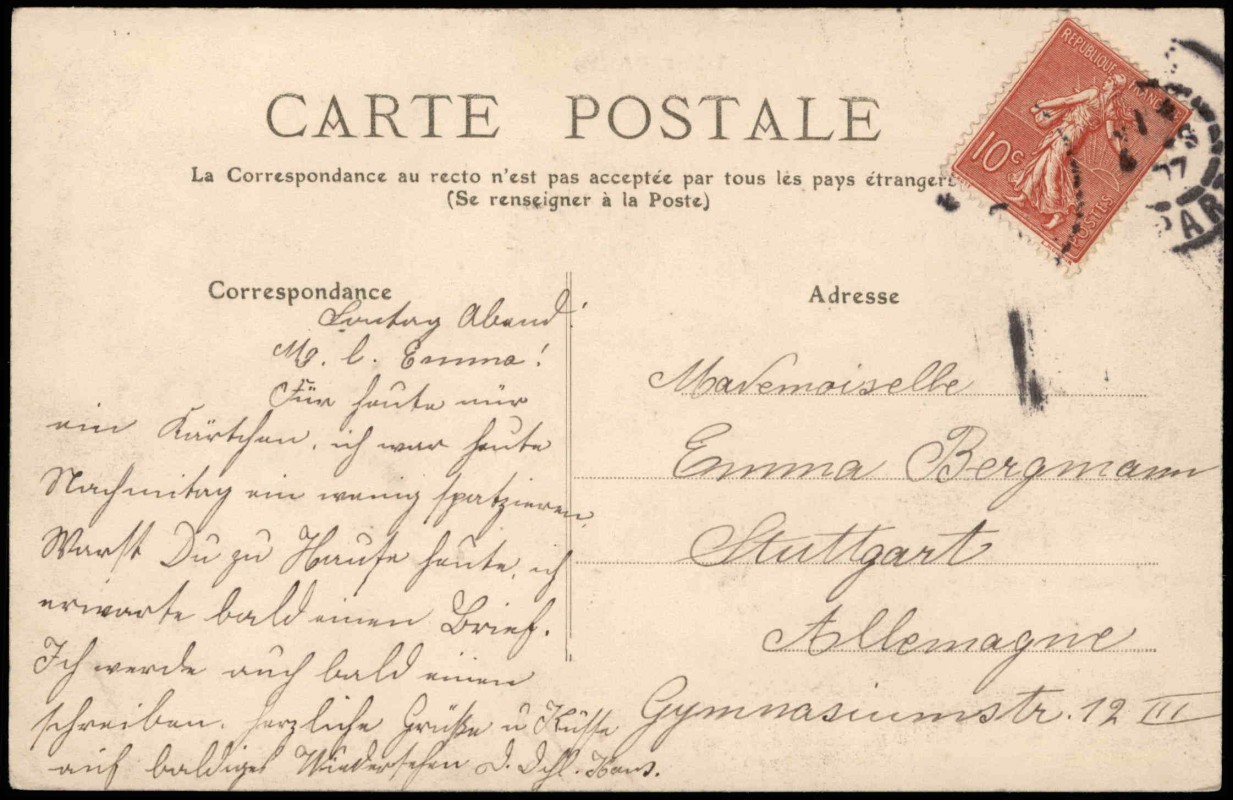 CARTE POSTALE
La Correspondance au recto n'est pas acceptée par tous les pays étrangers
(Se renseigner à la Poste)
Correspondance
Sontag Abend.
M. l. Emma!
Für heute nur
ein Kärtchen, ich war heute
Nachmitag ein wenig spatzieren,
Warst Du zu Hause heute, ich
erwarte bald einen Brief.
Ich werde auch bald einen
schreiben. herzliche Grüße u Küsse
auf baldiges Wiedersehen D. Hans.
Adresse
Mademoiselle
Emma Bergmann
Stuttgart
Allemagne
Gymnasiumstr. 12 III
REPUBLIQUE FRANC
10c
POSTES